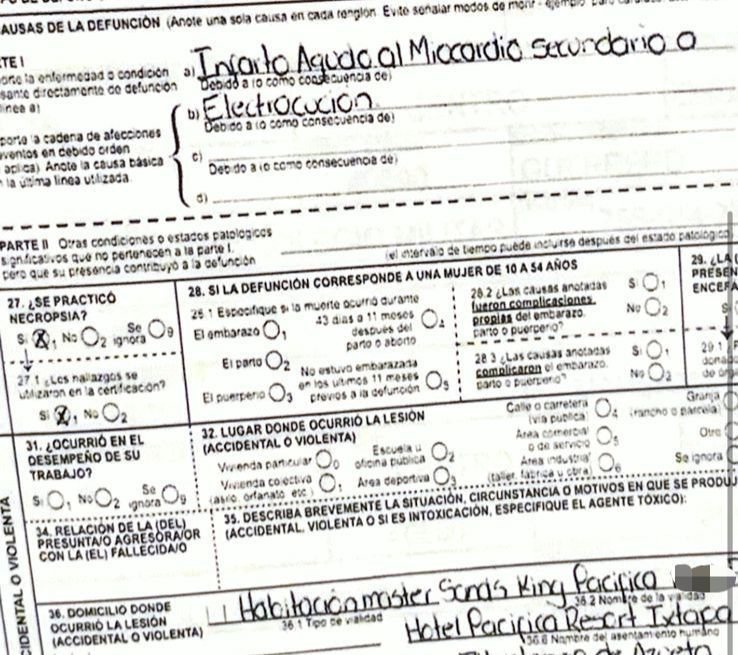 AUSAS DE LA DEFUNCIÓN (Anote una sola causa en cada renglón. Evite señalar modos de morir - ejemplo
TE I
la enfermedad o condición a) Infarto Agudo al Miocardio secundario a
sante directamente de defunción Debido a (o como consecuencia de)
línea a)
b) Electrocución
Debido a (o como consecuencia de)
porte la cadena de afecciones
eventos en debido orden c)
aplica). Anote la causa básica Debido a (o como consecuencia de)
la última línea utilizada. d)
PARTE II Otras condiciones o estados patológicos
significativos que no pertenecen a la parte I,
pero que su presencia contribuyó a la defunción (el intervalo de tiempo puede incluirse después del estado patológico)
27. ¿SE PRACTICÓ NECROPSIA?
Sí X 1 No 2 Se ignora 9
27.1 ¿Los hallazgos se utilizaron en la certificación?
Sí X 1 No 2
28. SI LA DEFUNCIÓN CORRESPONDE A UNA MUJER DE 10 A 54 AÑOS
28.1 Especifique si la muerte ocurrió durante
El embarazo 1
El parto 2
El puerperio 3
43 días a 11 meses después del parto o aborto 4
No estuvo embarazada en los últimos 11 meses previos a la defunción 5
28.2 ¿Las causas anotadas fueron complicaciones propias del embarazo, parto o puerperio?
Sí 1
No 2
28.3 ¿Las causas anotadas complicaron el embarazo, parto o puerperio?
Sí 1
No 2
29. ¿LA
PRESEN
ENCEFA
Sí
29.1
donad
de órg
31. ¿OCURRIÓ EN EL DESEMPEÑO DE SU TRABAJO?
Sí 1 No 2 Se ignora 9
32. LUGAR DONDE OCURRIÓ LA LESIÓN (ACCIDENTAL O VIOLENTA)
Vivienda particular 0
Vivienda colectiva (asilo, orfanato, etc.) 1
Escuela u oficina pública 2
Área deportiva 3
Calle o carretera (vía pública) 4
Área comercial o de servicio 5
Área industrial (taller, fábrica u obra) 6
Granja (rancho o parcela)
Otro
Se ignora
CIDENTAL O VIOLENTA
34. RELACIÓN DE LA (DEL) PRESUNTA/O AGRESORA/OR CON LA (EL) FALLECIDA/O
35. DESCRIBA BREVEMENTE LA SITUACIÓN, CIRCUNSTANCIA O MOTIVOS EN QUE SE PRODUJ
(ACCIDENTAL, VIOLENTA O SI ES INTOXICACIÓN, ESPECIFIQUE EL AGENTE TÓXICO):
36. DOMICILIO DONDE OCURRIÓ LA LESIÓN (ACCIDENTAL O VIOLENTA)
Habitación master Sands King Pacifica
36.1 Tipo de vialidad 36.2 Nombre de la vialidad
Hotel Pacifica Resort Ixtapa
36.6 Nombre del asentamiento humano
de Azueta